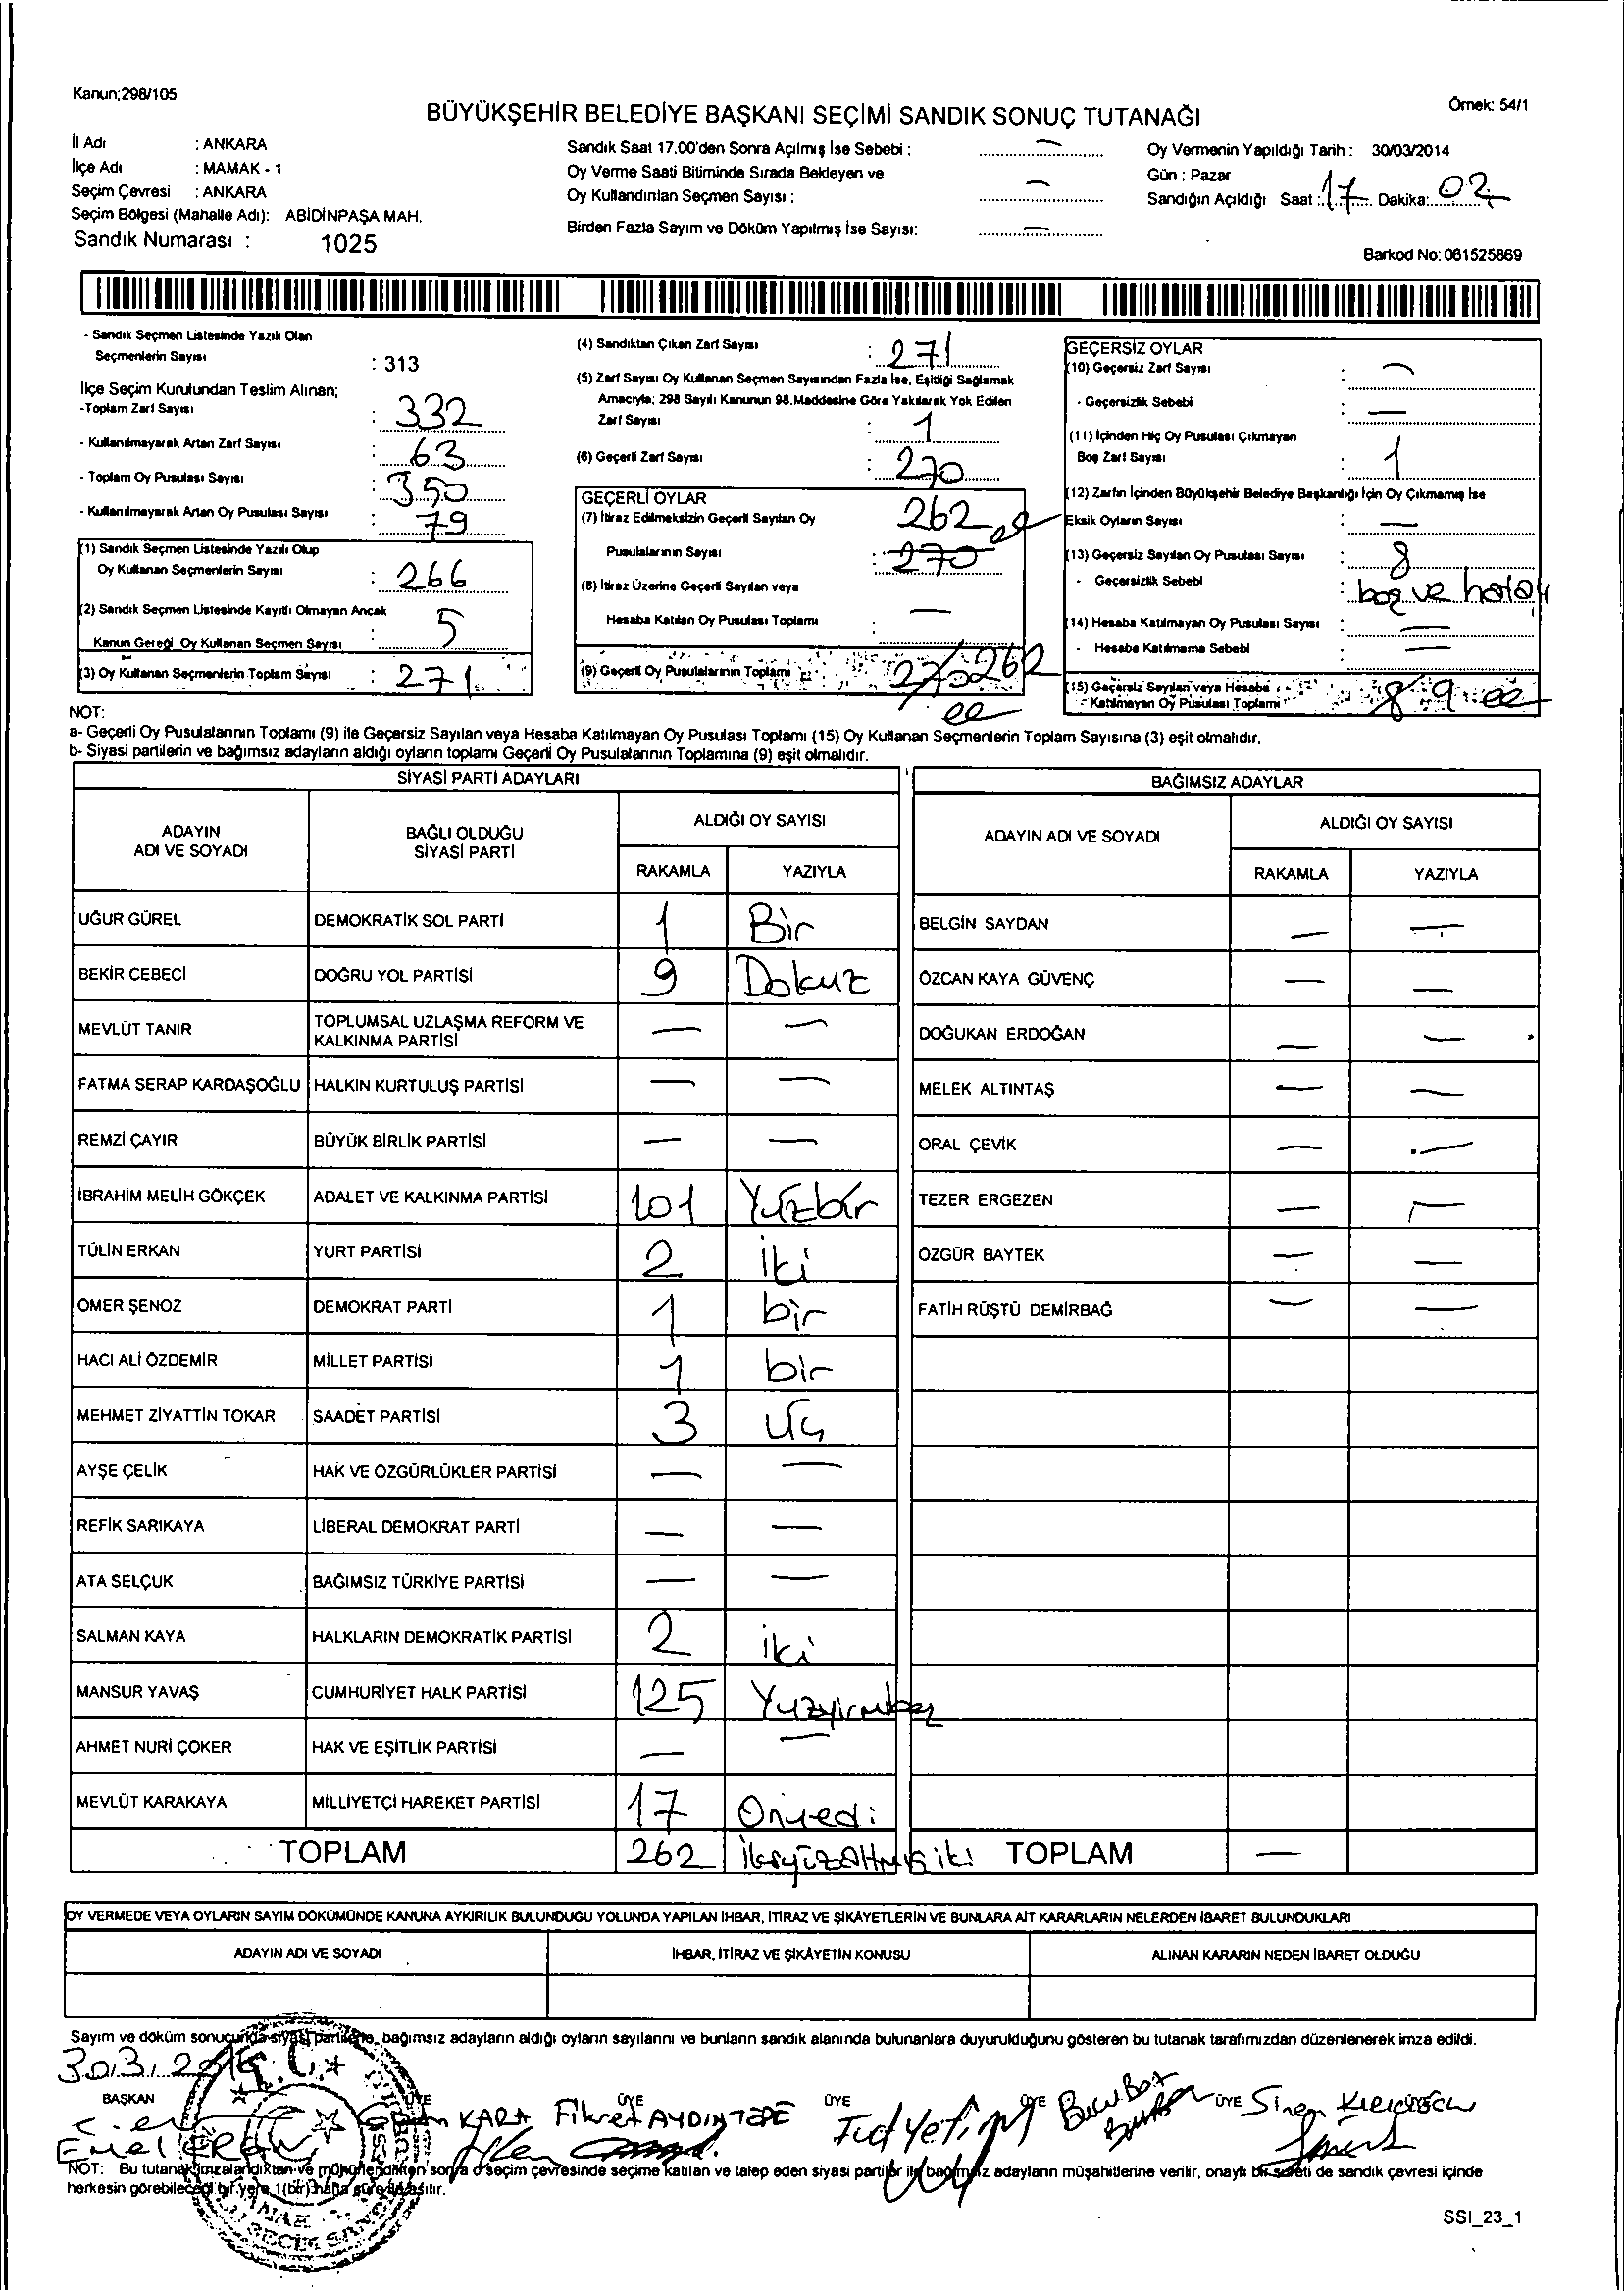 Kanun;298/105
Örnek: 54/1
BÜYÜKŞEHİR BELEDİYE BAŞKANI SEÇİMİ SANDIK SONUÇ TUTANAĞI
İl Adı : ANKARA
İlçe Adı : MAMAK - 1
Seçim Çevresi : ANKARA
Seçim Bölgesi (Mahalle Adı): ABİDİNPAŞA MAH.
Sandık Numarası : 1025
Sandık Saat 17.00'den Sonra Açılmış İse Sebebi : —
Oy Verme Saati Bitiminde Sırada Bekleyen ve
Oy Kullandırılan Seçmen Sayısı : —
Birden Fazla Sayım ve Döküm Yapılmış İse Sayısı: —
Oy Vermenin Yapıldığı Tarih : 30/03/2014
Gün : Pazar
Sandığın Açıldığı Saat : 17 Dakika: 02
Barkod No: 061525869
- Sandık Seçmen Listesinde Yazılı Olan
Seçmenlerin Sayısı : 313
İlçe Seçim Kurulundan Teslim Alınan;
-Toplam Zarf Sayısı : 332
- Kullanılmayarak Artan Zarf Sayısı : 63
- Toplam Oy Pusulası Sayısı : 350
- Kullanılmayarak Artan Oy Pusulası Sayısı : 79
(1) Sandık Seçmen Listesinde Yazılı Olup
Oy Kullanan Seçmenlerin Sayısı : 266
(2) Sandık Seçmen Listesinde Kayıtlı Olmayan Ancak
Kanun Gereği Oy Kullanan Seçmen Sayısı : 5
(3) Oy Kullanan Seçmenlerin Toplam Sayısı : 271
(4) Sandıktan Çıkan Zarf Sayısı : 271
(5) Zarf Sayısı Oy Kullanan Seçmen Sayısından Fazla İse, Eşitliği Sağlamak
Amacıyla; 298 Sayılı Kanunun 98.Maddesine Göre Yakılarak Yok Edilen
Zarf Sayısı : 1
(6) Geçerli Zarf Sayısı : 270
GEÇERLİ OYLAR
(7) İtiraz Edilmeksizin Geçerli Sayılan Oy 262
Pusulalarının Sayısı : 270
(8) İtiraz Üzerine Geçerli Sayılan veya
Hesaba Katılan Oy Pusulası Toplamı : —
(9) Geçerli Oy Pusulalarının Toplamı : 270 262
GEÇERSİZ OYLAR
(10) Geçersiz Zarf Sayısı : —
- Geçersizlik Sebebi : —
(11) İçinden Hiç Oy Pusulası Çıkmayan
Boş Zarf Sayısı : 1
(12) Zarfın İçinden Büyükşehir Belediye Başkanlığı İçin Oy Çıkmamış İse
Eksik Oyların Sayısı : —
(13) Geçersiz Sayılan Oy Pusulası Sayısı : 8
- Geçersizlik Sebebi : boş ve hatalı
(14) Hesaba Katılmayan Oy Pusulası Sayısı : —
- Hesaba Katılmama Sebebi : —
(15) Geçersiz Sayılan veya Hesaba
Katılmayan Oy Pusulası Toplamı : 8 9
NOT:
a- Geçerli Oy Pusulalarının Toplamı (9) ile Geçersiz Sayılan veya Hesaba Katılmayan Oy Pusulası Toplamı (15) Oy Kullanan Seçmenlerin Toplam Sayısına (3) eşit olmalıdır.
b- Siyasi partilerin ve bağımsız adayların aldığı oyların toplamı Geçerli Oy Pusulalarının Toplamına (9) eşit olmalıdır.
SİYASİ PARTİ ADAYLARI
ADAYIN ADI VE SOYADI BAĞLI OLDUĞU SİYASİ PARTİ ALDIĞI OY SAYISI
RAKAMLA YAZIYLA
UĞUR GÜREL DEMOKRATİK SOL PARTİ 1 Bir
BEKİR CEBECİ DOĞRU YOL PARTİSİ 9 Dokuz
MEVLÜT TANIR TOPLUMSAL UZLAŞMA REFORM VE KALKINMA PARTİSİ — —
FATMA SERAP KARDAŞOĞLU HALKIN KURTULUŞ PARTİSİ — —
REMZİ ÇAYIR BÜYÜK BİRLİK PARTİSİ — —
İBRAHİM MELİH GÖKÇEK ADALET VE KALKINMA PARTİSİ 101 Yüzbir
TÜLİN ERKAN YURT PARTİSİ 2 İki
ÖMER ŞENÖZ DEMOKRAT PARTİ 1 bir
HACI ALİ ÖZDEMİR MİLLET PARTİSİ 1 bir
MEHMET ZİYATTİN TOKAR SAADET PARTİSİ 3 Üç
AYŞE ÇELİK HAK VE ÖZGÜRLÜKLER PARTİSİ — —
REFİK SARIKAYA LİBERAL DEMOKRAT PARTİ — —
ATA SELÇUK BAĞIMSIZ TÜRKİYE PARTİSİ — —
SALMAN KAYA HALKLARIN DEMOKRATİK PARTİSİ 2 iki
MANSUR YAVAŞ CUMHURİYET HALK PARTİSİ 125 Yuzyirmibeş
AHMET NURİ ÇOKER HAK VE EŞİTLİK PARTİSİ — —
MEVLÜT KARAKAYA MİLLİYETÇİ HAREKET PARTİSİ 17 Onyedi
TOPLAM 262 ikiyüzaltmışiki
BAĞIMSIZ ADAYLAR
ADAYIN ADI VE SOYADI ALDIĞI OY SAYISI
RAKAMLA YAZIYLA
BELGİN SAYDAN — —
ÖZCAN KAYA GÜVENÇ — —
DOĞUKAN ERDOĞAN — —
MELEK ALTINTAŞ — —
ORAL ÇEVİK — —
TEZER ERGEZEN — —
ÖZGÜR BAYTEK — —
FATİH RÜŞTÜ DEMİRBAĞ — —
TOPLAM —
OY VERMEDE VEYA OYLARIN SAYIM DÖKÜMÜNDE KANUNA AYKIRILIK BULUNDUĞU YOLUNDA YAPILAN İHBAR, İTİRAZ VE ŞİKÂYETLERİN VE BUNLARA AİT KARARLARIN NELERDEN İBARET BULUNDUKLARI
ADAYIN ADI VE SOYADI İHBAR, İTİRAZ VE ŞİKÂYETİN KONUSU ALINAN KARARIN NEDEN İBARET OLDUĞU
Sayım ve döküm sonucunda siyasi partilerle, bağımsız adayların aldığı oyların sayılarını ve bunların sandık alanında bulunanlara duyurulduğunu gösteren bu tutanak tarafımızdan düzenlenerek imza edildi.
30.3.2014
T.C.
BAŞKAN ÜYE ÜYE ÜYE ÜYE ÜYE
Emel ERAN
KARA Fikret AYDINTEPE
Sinem
NOT: Bu tutanak imzalandıktan ve mühürlendikten sonra o seçim çevresinde seçime katılan ve talep eden siyasi partiler ile bağımsız adayların müşahitlerine verilir, onaylı bir sureti de sandık çevresi içinde
herkesin görebileceği bir yere 1(bir) hafta süre ile asılır.
SSI_23_1